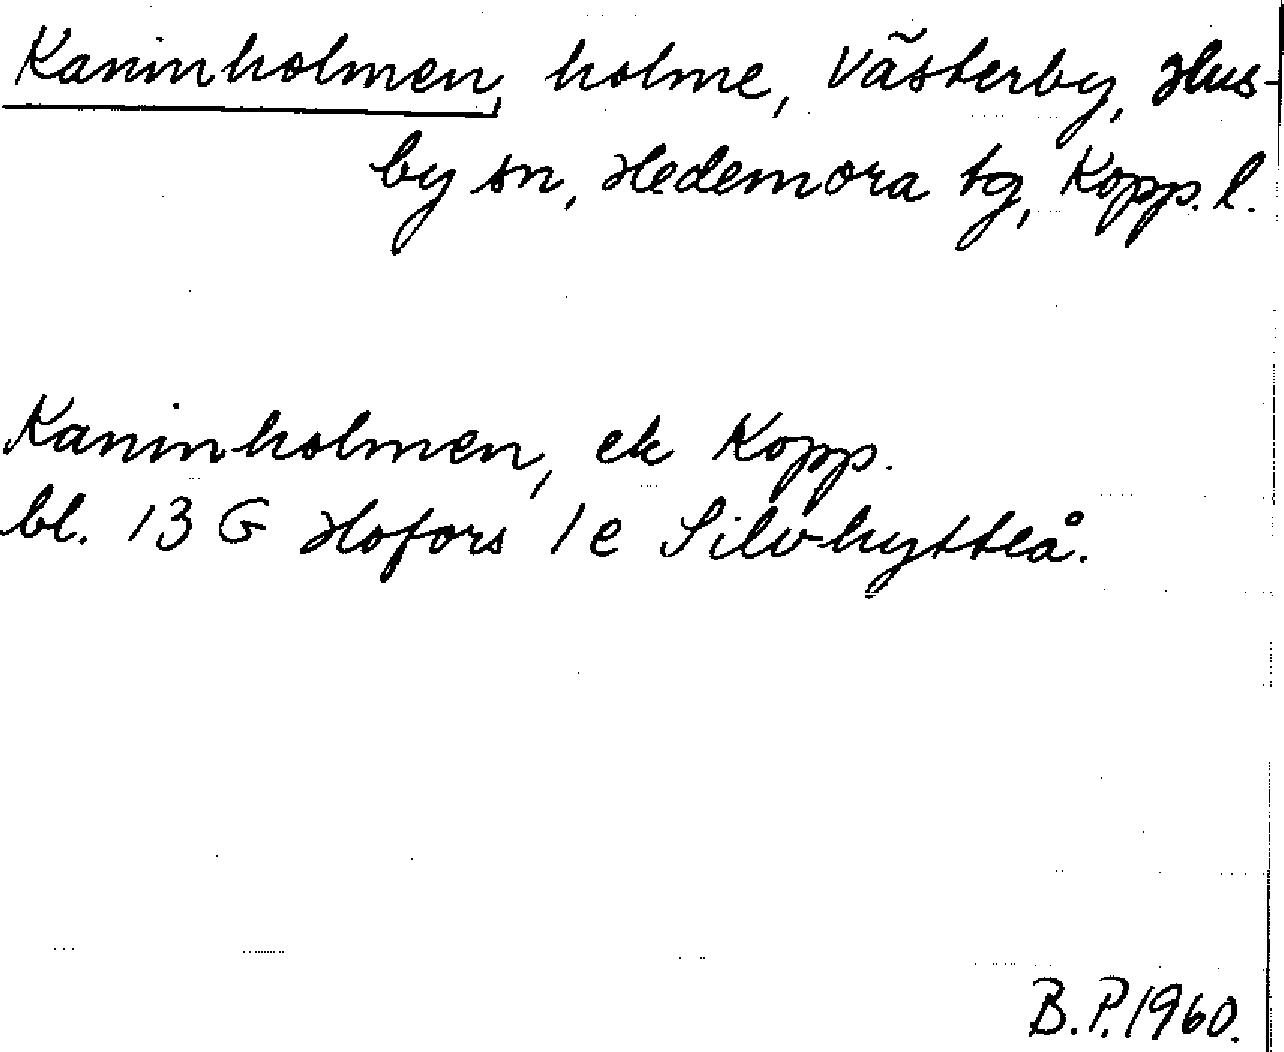 Kaninholmen, holme, Västerby, Hus-
by sn, Hedemora tg, Kopp. l.
Kaninholmen, ek Kopp.
bl. 13 G Hofors 1 e Silvhytteå.
B.P. 1960.